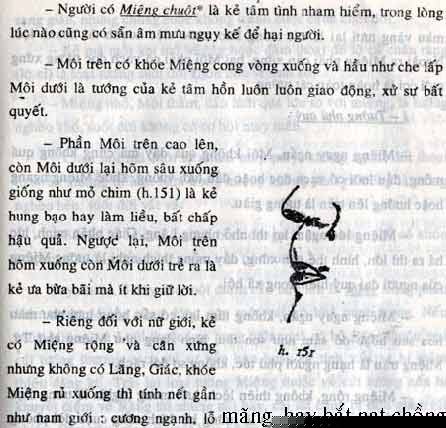 – Người có Miệng chuột* là kẻ tầm tình nham hiểm, trong lòng
lúc nào cũng có sẵn âm mưu ngụy kế để hại người.
– Môi trên có khóe Miệng cong vòng xuống và hầu như che lấp
Môi dưới là tướng của kẻ tâm hồn luôn luôn giao động, xử sự bất
quyết.
– Phần Môi trên cao lên,
còn Môi dưới lại hõm sâu xuống
giống như mỏ chim (h.151) là kẻ
hung bạo hay làm liều, bất chấp
hậu quả. Ngược lại, Môi trên
hõm xuống còn Môi dưới trề ra là
kẻ ưa bừa bãi mà ít khi giữ lời.
– Riêng đối với nữ giới, kẻ
có Miệng rộng và cân xứng
nhưng không có Lăng, Giác, khóe
Miệng rủ xuống thì tính nết gần
như nam giới : cương ngạnh, lỗ
h. 151
mãng, hay bắt nạt chồng